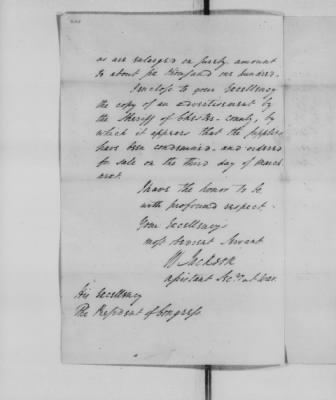 as are enlarged on surety amount
to about six thousand one hundred.
I enclose to your Excellency
the copy of an advertisement by
the Sheriff of Chester-county, by
which it appears that the supplies
have been condemned and ordered
for sale on the third day of March
next.
I have the honor to be
with profound respect.
Your Excellency's
most obedient Servant
W Jackson
assistant Secy at War.
His Excellency
The President of Congress